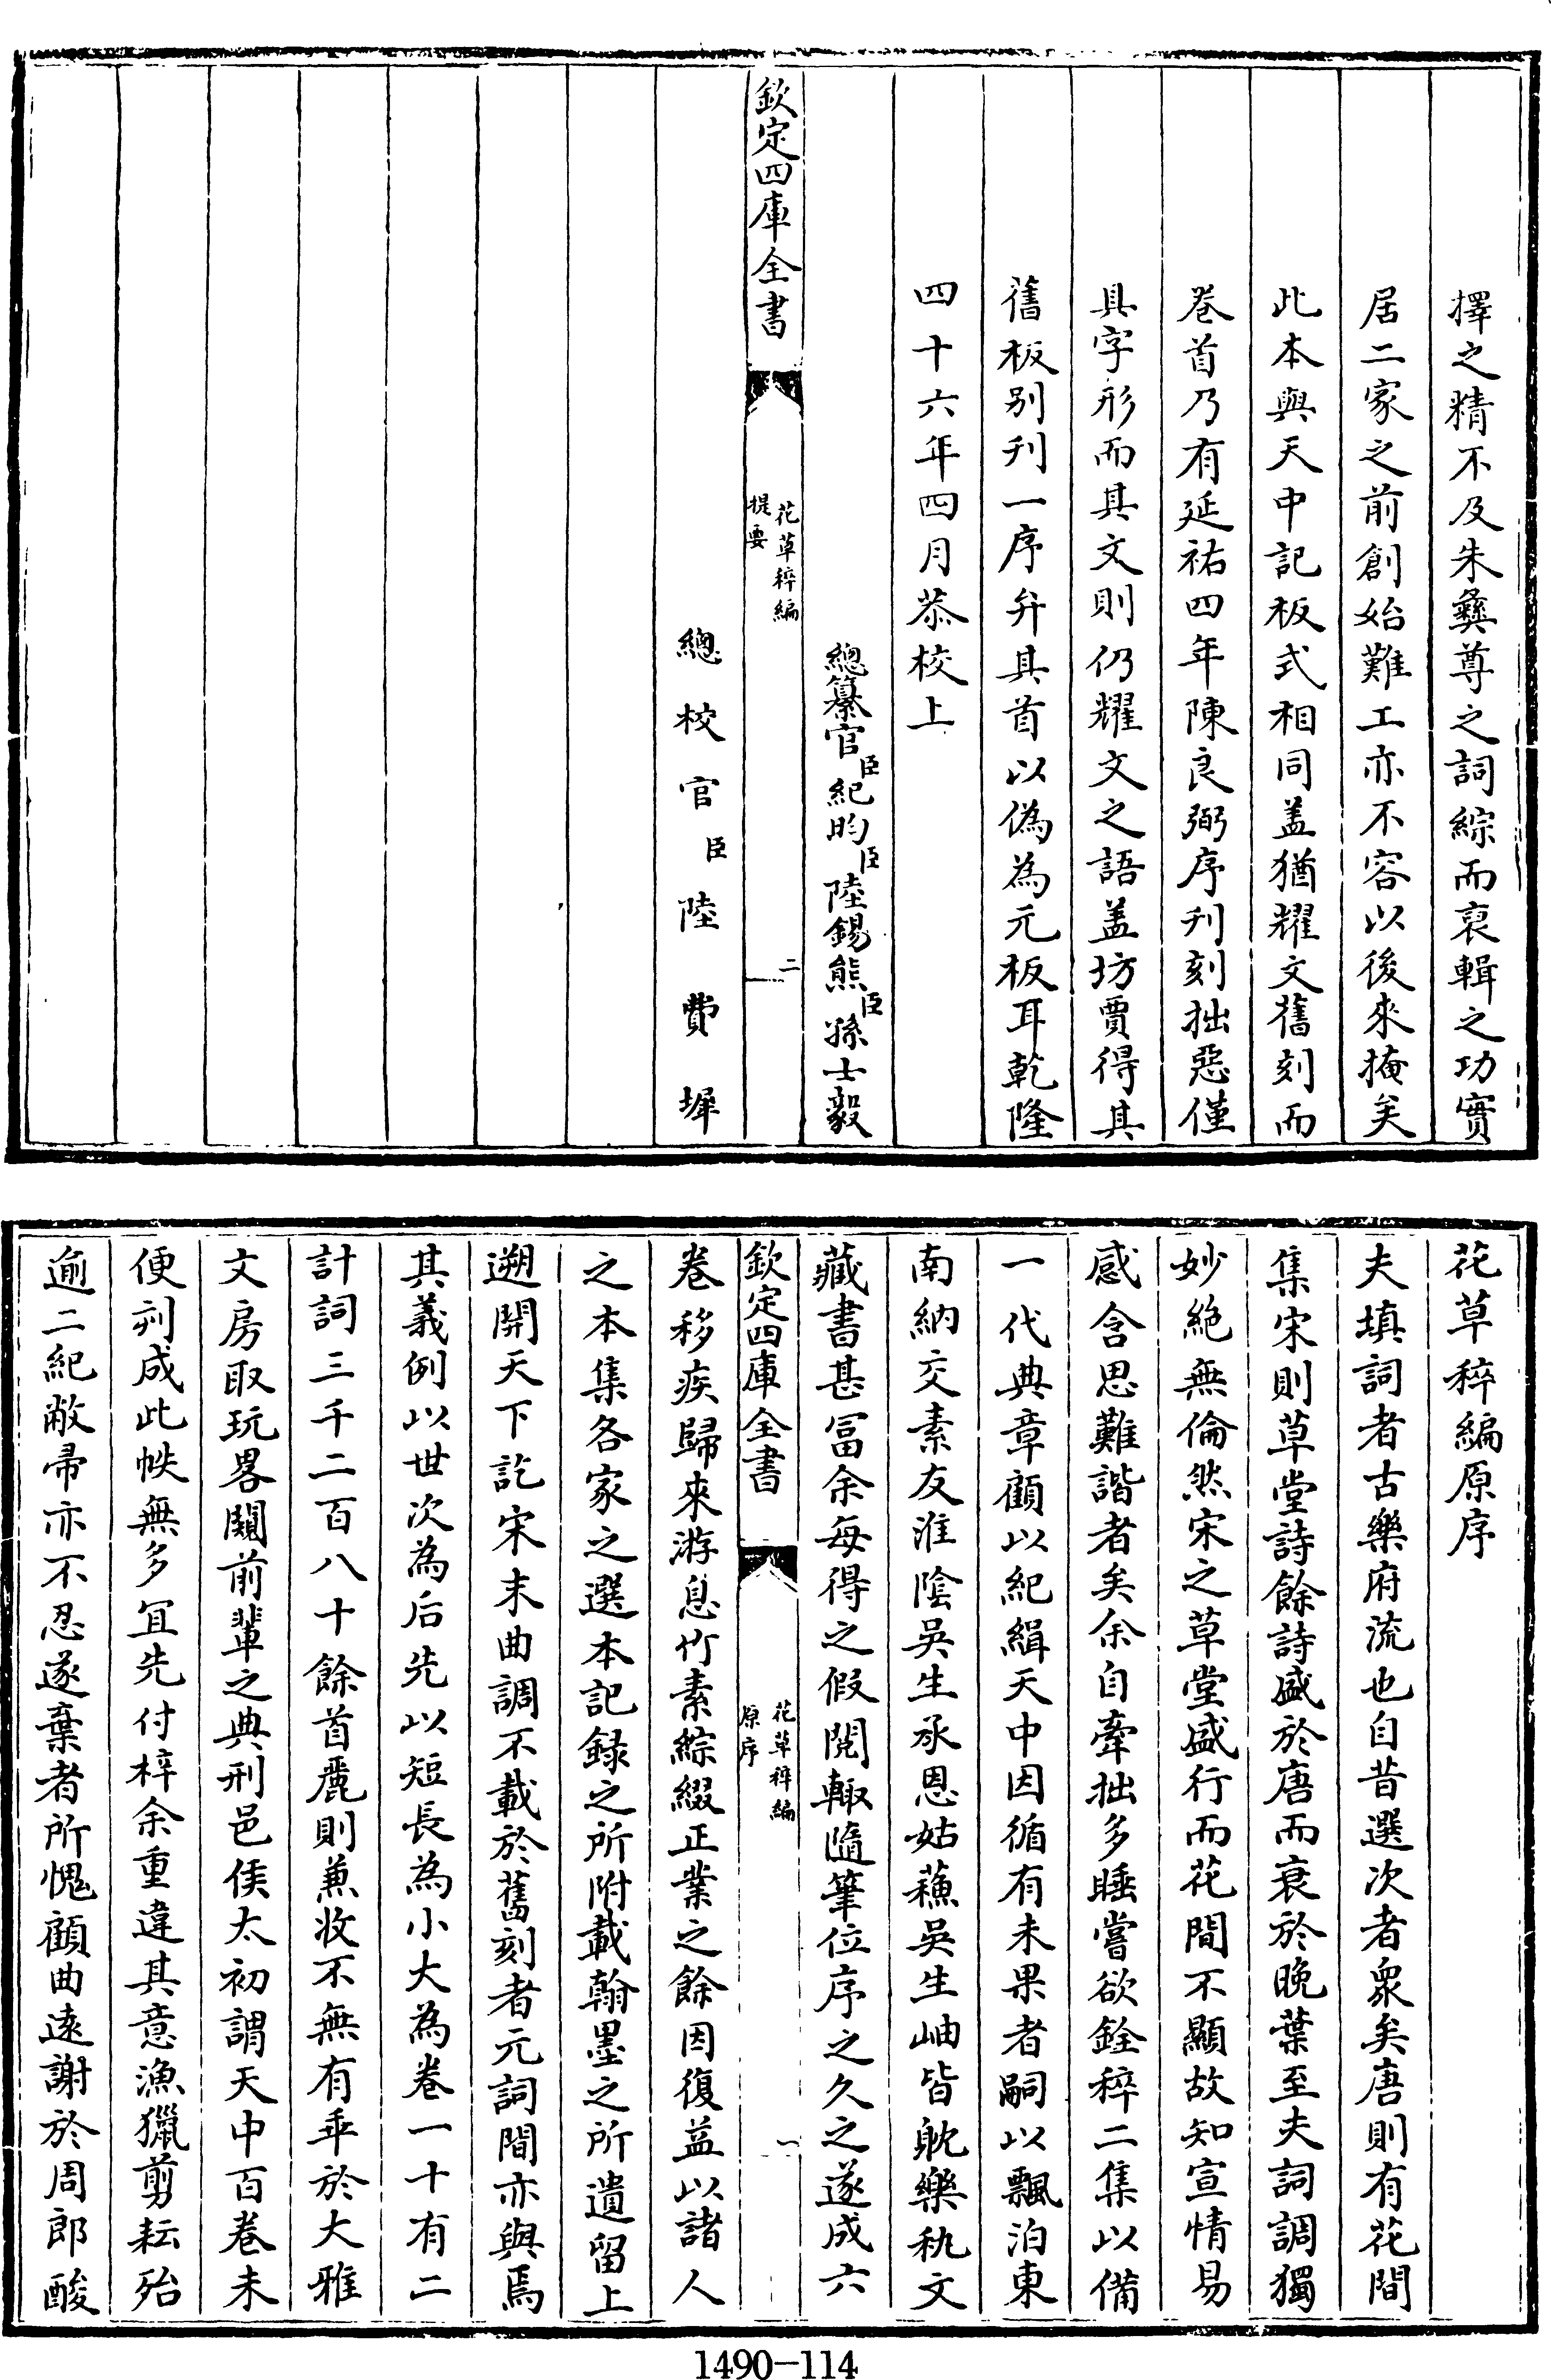 擇之精不及朱彝尊之詞綜而裒輯之功實
居二家之前創始難工亦不容以後來掩矣
此本與天中記板式相同盖猶耀文舊刻而
卷首乃有延祐四年陳良弼序刋刻拙惡僅
具字形而其文則仍耀文之語盖坊賈得其
舊板别刋一序弁其首以偽為元板耳乾隆
四十六年四月恭校上
總纂官臣紀昀臣陸錫熊臣孫士毅
欽定四庫全書
花草稡編
提要
二
總校官臣陸費墀
花草稡編原序
夫填詞者古樂府流也自昔選次者衆矣唐則有花間
集宋則草堂詩餘詩盛於唐而衰於晚葉至夫詞調獨
妙絶無倫然宋之草堂盛行而花間不顯故知宣情易
感含思難諧者矣余自牽拙多睡嘗欲銓稡二集以備
一代典章顧以紀緝天中因循有未果者嗣以飄泊東
南納交素友淮隂吳生承恩姑蘓吳生岫皆躭樂秇文
藏書甚富余每得之假閱輙隨筆位序之久之遂成六
欽定四庫全書
花草稡編
原序
一
卷移疾歸來游息竹素綜綴正業之餘因復益以諸人
之本集各家之選本記録之所附載翰墨之所遺留上
遡開天下訖宋末曲調不載於舊刻者元詞間亦與焉
其義例以世次為后先以短長為小大為卷一十有二
計詞三千二百八十餘首麗則兼收不無有乖於大雅
文房取玩畧闚前輩之典刑邑侯太初謂天中百卷未
便刋成此帙無多宜先付梓余重違其意漁獵剪耘殆
逾二紀敝帚亦不忍遂棄者所愧顧曲逺謝於周郎酸
1490-114